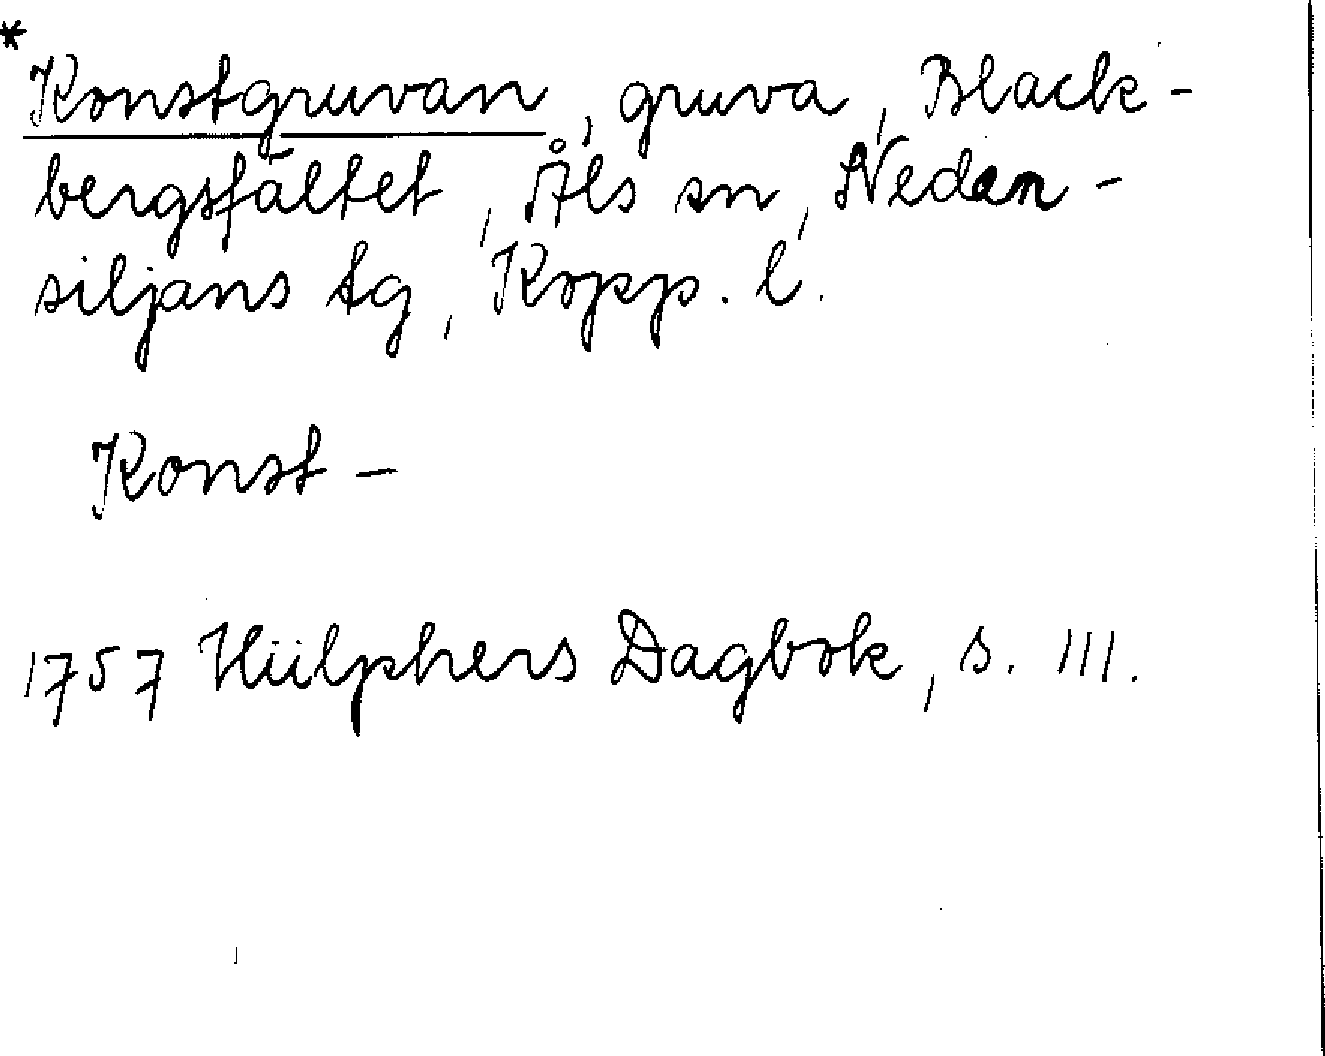 *
Konstgruvan, gruva, Black-
bergsfältet, Åls sn, Nedan-
siljans tg, Kopp. l.
Konst-
1757 Hülphers Dagbok, s. 111.